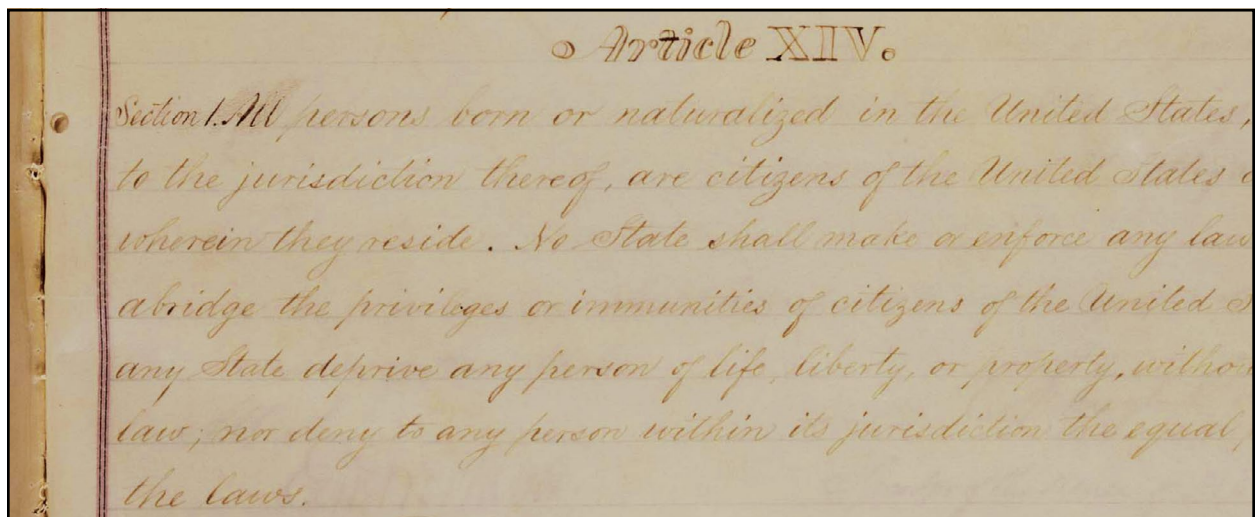 Article XIV.
Section 1. All persons born or naturalized in the United States,
to the jurisdiction thereof, are citizens of the United States
wherein they reside. No State shall make or enforce any law
abridge the privileges or immunities of citizens of the United
any State deprive any person of life, liberty, or property, withou
law; nor deny to any person within its jurisdiction the equal
the laws.